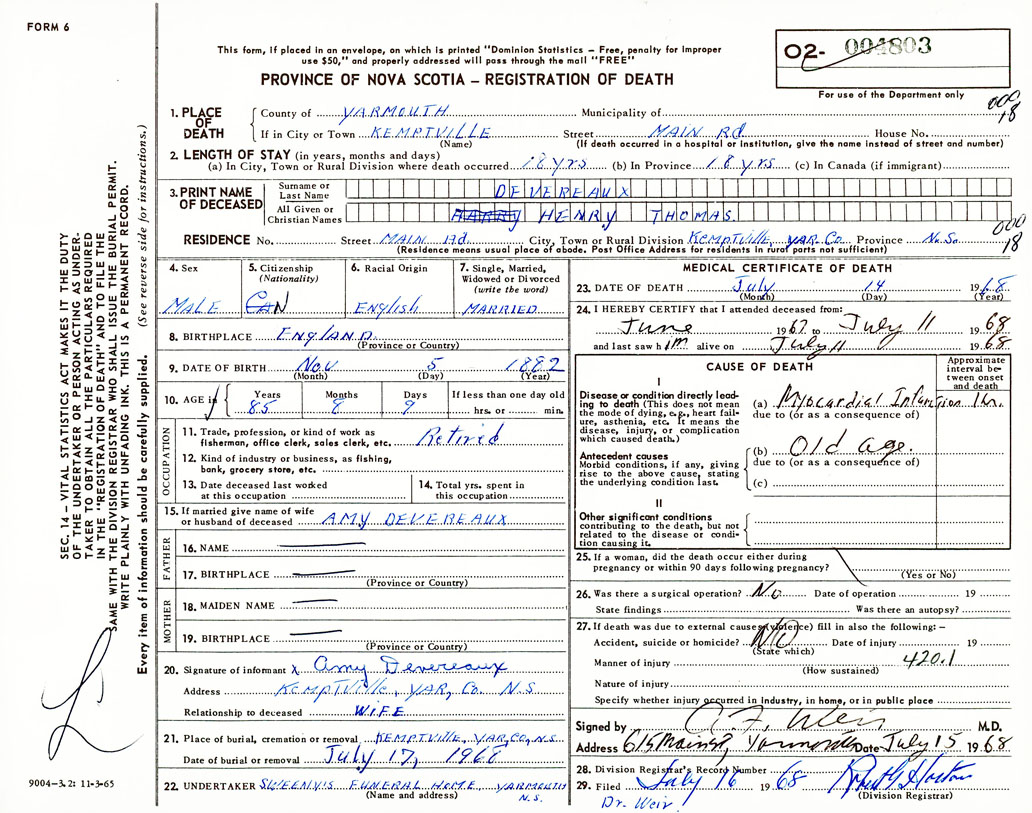 FORM 6
This form, if placed in an envelope, on which is printed "Dominion Statistics – Free, penalty for improper
use $50," and properly addressed will pass through the mail "FREE"
PROVINCE OF NOVA SCOTIA – REGISTRATION OF DEATH
02- 004803
For use of the Department only
000
18
1. PLACE OF DEATH
County of YARMOUTH Municipality of
If in City or Town KEMPTVILLE Street MAIN Rd House No.
(Name) (If death occurred in a hospital or institution, give the name instead of street and number)
2. LENGTH OF STAY (in years, months and days)
(a) In City, Town or Rural Division where death occurred 18 yrs (b) In Province 18 yrs (c) In Canada (if immigrant)
3. PRINT NAME OF DECEASED
Surname or Last Name DEVEREAUX
All Given or Christian Names HARRY HENRY THOMAS
000
18
RESIDENCE No. Street MAIN Rd. City, Town or Rural Division KEMPTVILLE, YAR. Co. Province N.S.
(Residence means usual place of abode. Post Office Address for residents in rural parts not sufficient)
4. Sex
MALE
5. Citizenship
(Nationality)
CAN
6. Racial Origin
English
7. Single, Married,
Widowed or Divorced
(write the word)
MARRIED
8. BIRTHPLACE ENGLAND
(Province or Country)
9. DATE OF BIRTH Nov 5 1882
(Month) (Day) (Year)
10. AGE in Years Months Days If less than one day old
85 8 9 hrs. or min.
OCCUPATION
11. Trade, profession, or kind of work as
fisherman, office clerk, sales clerk, etc. Retired
12. Kind of industry or business, as fishing,
bank, grocery store, etc.
13. Date deceased last worked
at this occupation
14. Total yrs. spent in
this occupation
15. If married give name of wife
or husband of deceased AMY DEVEREAUX
FATHER
16. NAME
17. BIRTHPLACE
(Province or Country)
MOTHER
18. MAIDEN NAME
19. BIRTHPLACE
(Province or Country)
20. Signature of informant x Amy Devereaux
Address KEMPTVille, YAR, Co. N.S
Relationship to deceased WIFE
21. Place of burial, cremation or removal KEMPTVILLE, YAR, CO, N.S
Date of burial or removal July 17, 1968
22. UNDERTAKER SWEENYS FUNERAL HOME, YARMOUTH
(Name and address) N.S.
MEDICAL CERTIFICATE OF DEATH
23. DATE OF DEATH July 14 1968
(Month) (Day) (Year)
24. I HEREBY CERTIFY that I attended deceased from:
June 1967 to July 11 1968
and last saw him alive on July 11 1968
CAUSE OF DEATH
Approximate
interval be-
tween onset
and death
I
Disease or condition directly lead-
ing to death (This does not mean
the mode of dying, e.g., heart fail-
ure, asthenia, etc. It means the
disease, injury, or complication
which caused death.)
(a) Myocardial Infarction 1 hr.
due to (or as a consequence of)
Antecedent causes
Morbid conditions, if any, giving
rise to the above cause, stating
the underlying condition last.
(b) Old age.
due to (or as a consequence of)
(c)
II
Other significant conditions
contributing to the death, but not
related to the disease or condi-
tion causing it.
25. If a woman, did the death occur either during
pregnancy or within 90 days following pregnancy?
(Yes or No)
26. Was there a surgical operation? No Date of operation 19
State findings Was there an autopsy?
27. If death was due to external causes (violence) fill in also the following: –
Accident, suicide or homicide? No Date of injury 19
(State which)
Manner of injury 420.1
(How sustained)
Nature of injury
Specify whether injury occurred in Industry, in home, or in public place
Signed by A. F. Weir M.D.
Address 615 Main St, Yarmouth Date July 15 1968
28. Division Registrar's Record Number
29. Filed July 16 1968
(Division Registrar)
Dr. Weir
SEC. 14 – VITAL STATISTICS ACT MAKES IT THE DUTY
OF THE UNDERTAKER OR PERSON ACTING AS UNDER-
TAKER TO OBTAIN ALL THE PARTICULARS REQUIRED
IN THE "REGISTRATION OF DEATH" AND TO FILE THE
SAME WITH THE DIVISION REGISTRAR WHO SHALL ISSUE THE BURIAL PERMIT.
WRITE PLAINLY WITH UNFADING INK. THIS IS A PERMANENT RECORD.
Every item of information should be carefully supplied. (See reverse side for instructions.)
9004–3.2: 11-3-65